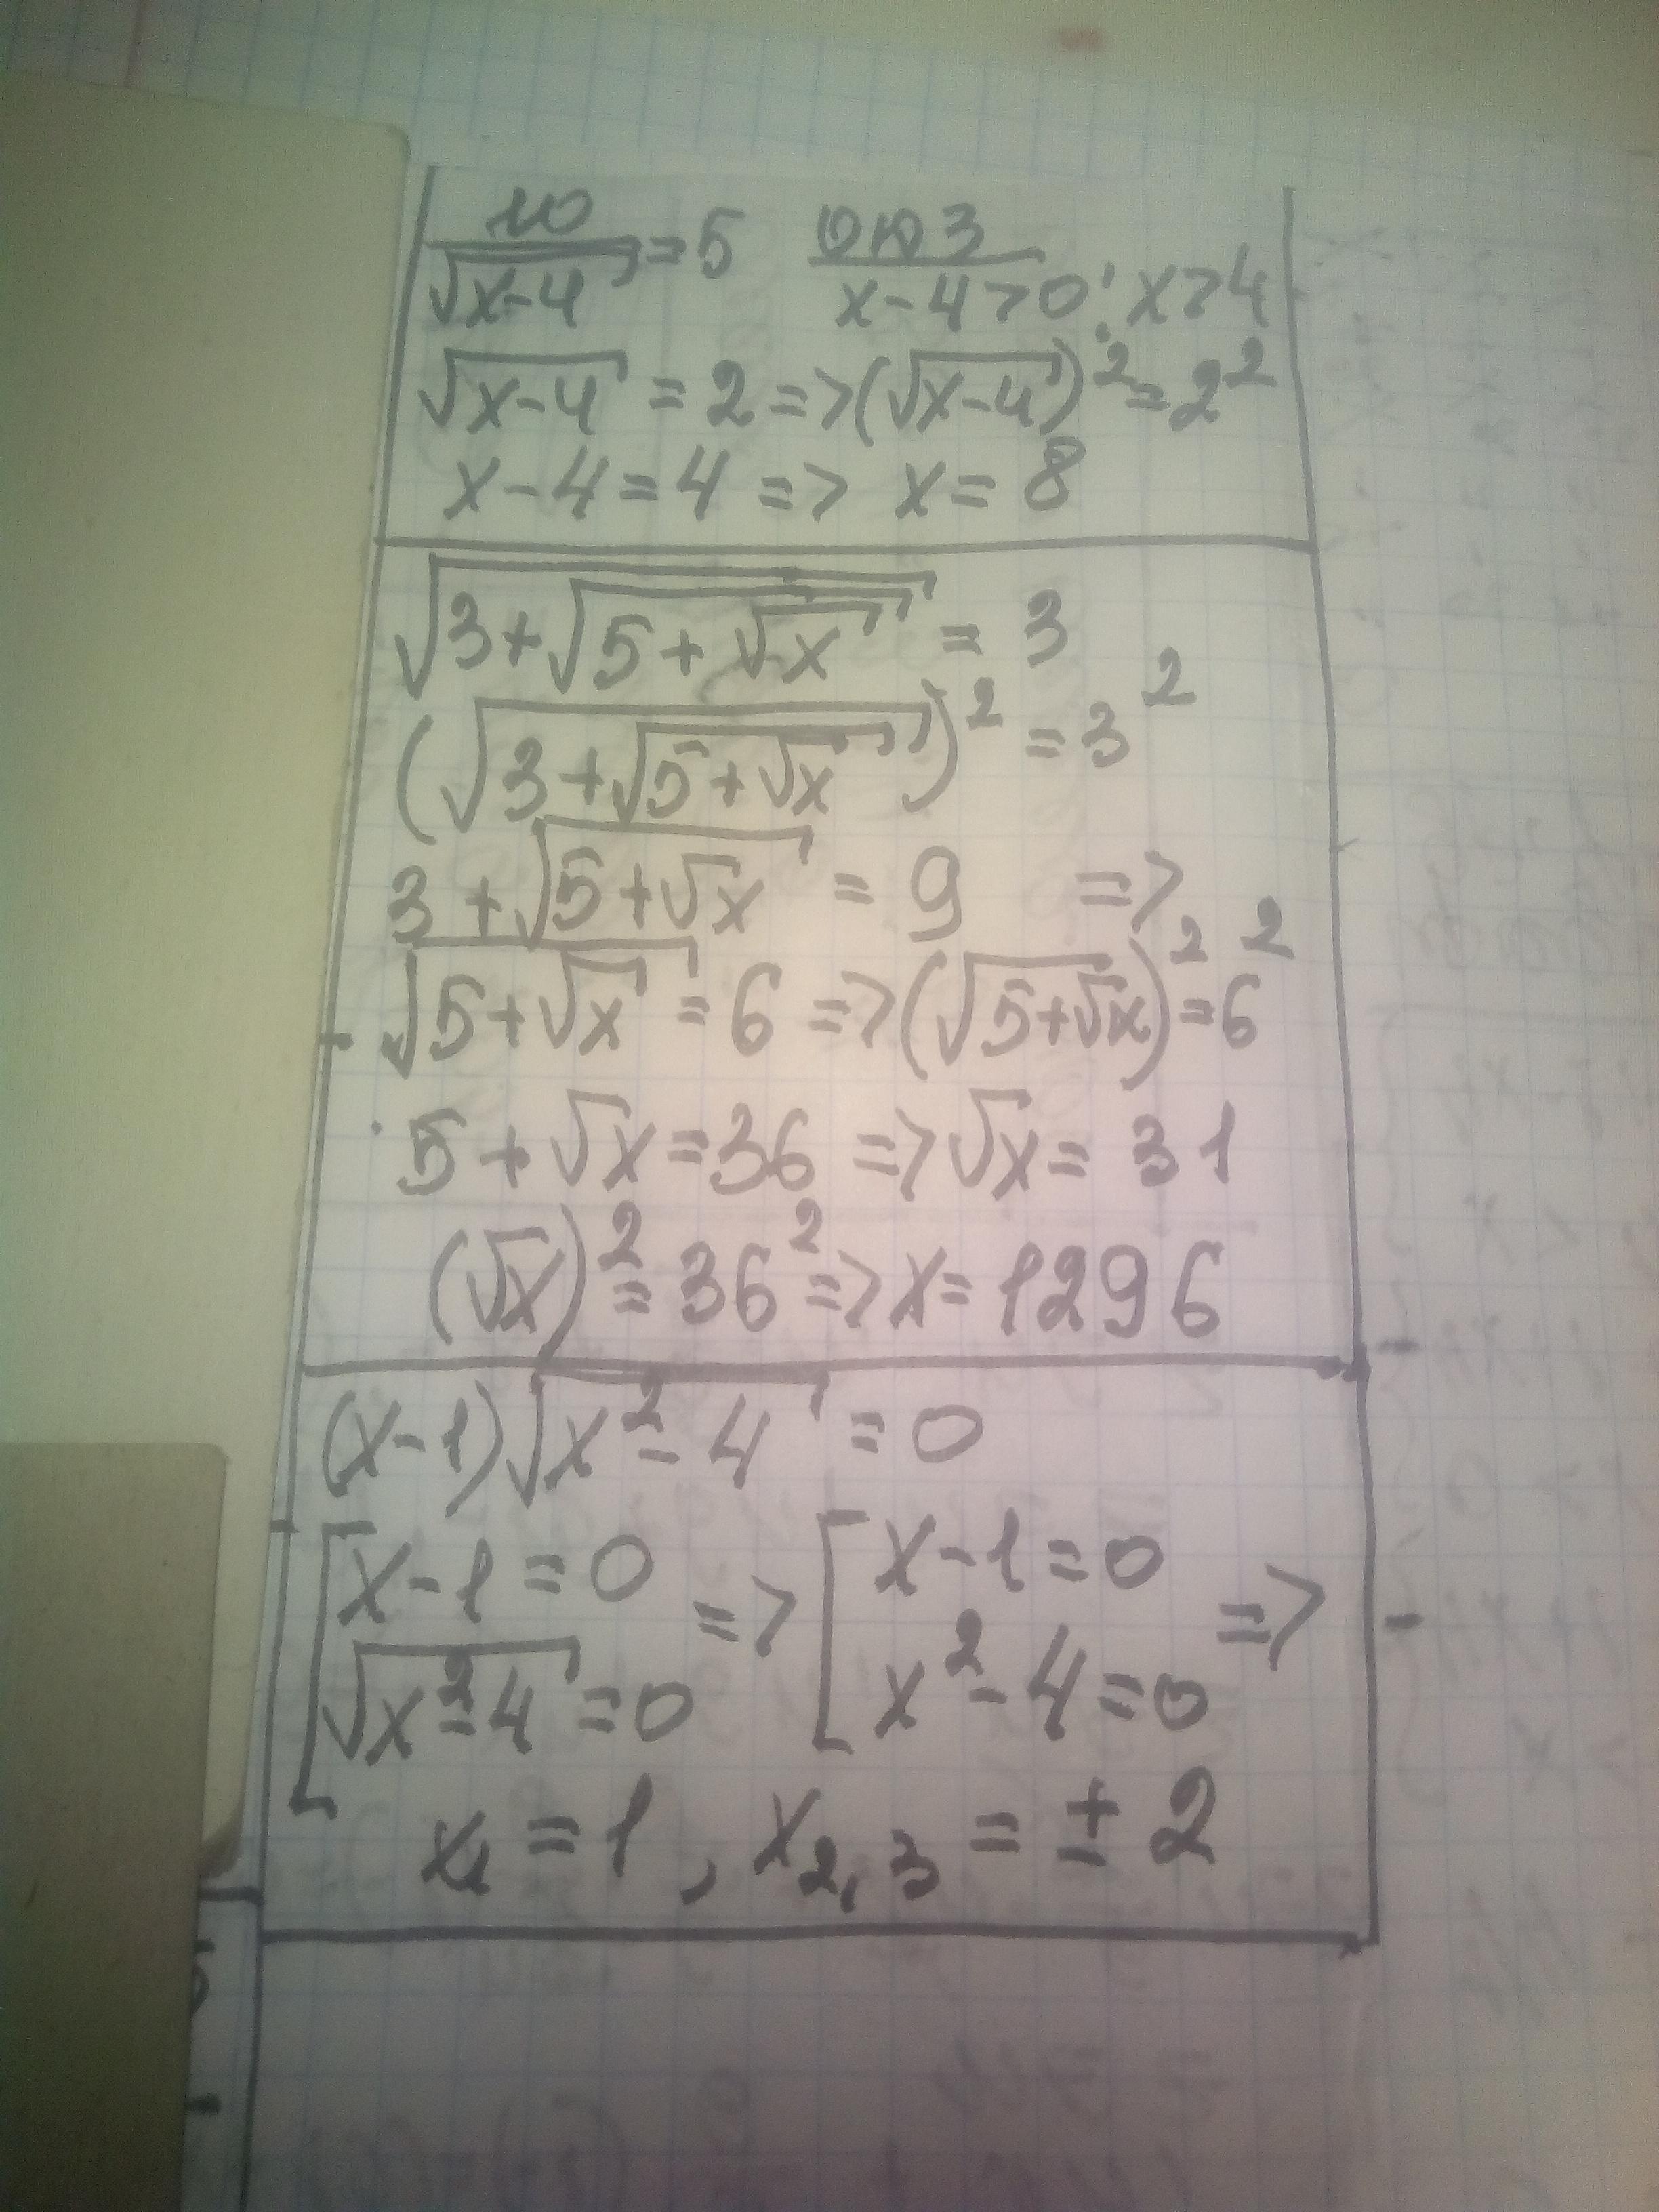 10/√(x-4) = 5 ОДЗ x-4>0; x>4
√(x-4) = 2 => (√(x-4))² = 2²
x-4=4 => x=8
√(3+√(5+√x)) = 3
(√(3+√(5+√x)))² = 3²
3+√(5+√x) = 9 =>
√(5+√x) = 6 => (√(5+√x))² = 6²
5+√x=36 => √x=31
(√x)² = 36² => x=1296
(x-1)√(x²-4) = 0
[x-1=0 => [x-1=0 =>
√(x²-4)=0 x²-4=0
x₁=1, x₂,₃=±2